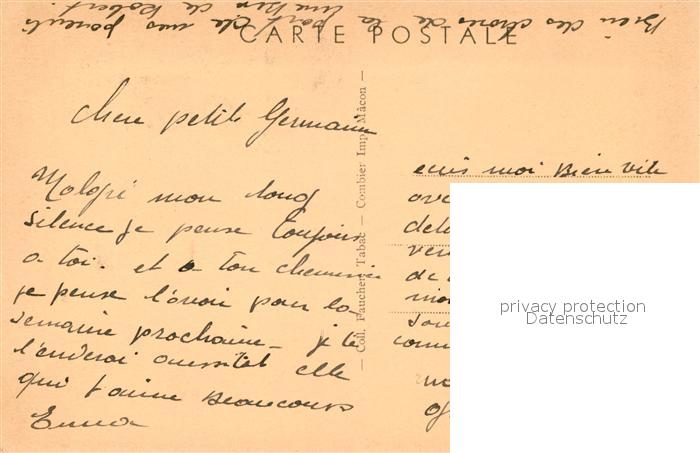 Bien des choses de la part de mes parents
un Ber de Robert
CARTE POSTALE
Chere petite Germaine
Malgré mon long
silence je pense toujours
a toi. et a ton chemisie
je pense l'avoir pour la
semaine prochaine - je te
l'enverai aussitot elle
qui t'aime Beaucoup
Emma
Coll. Faucher, Tabac — Combier Imp. Mâcon
ecris moi Bien vite
de
privacy protection
Datenschutz